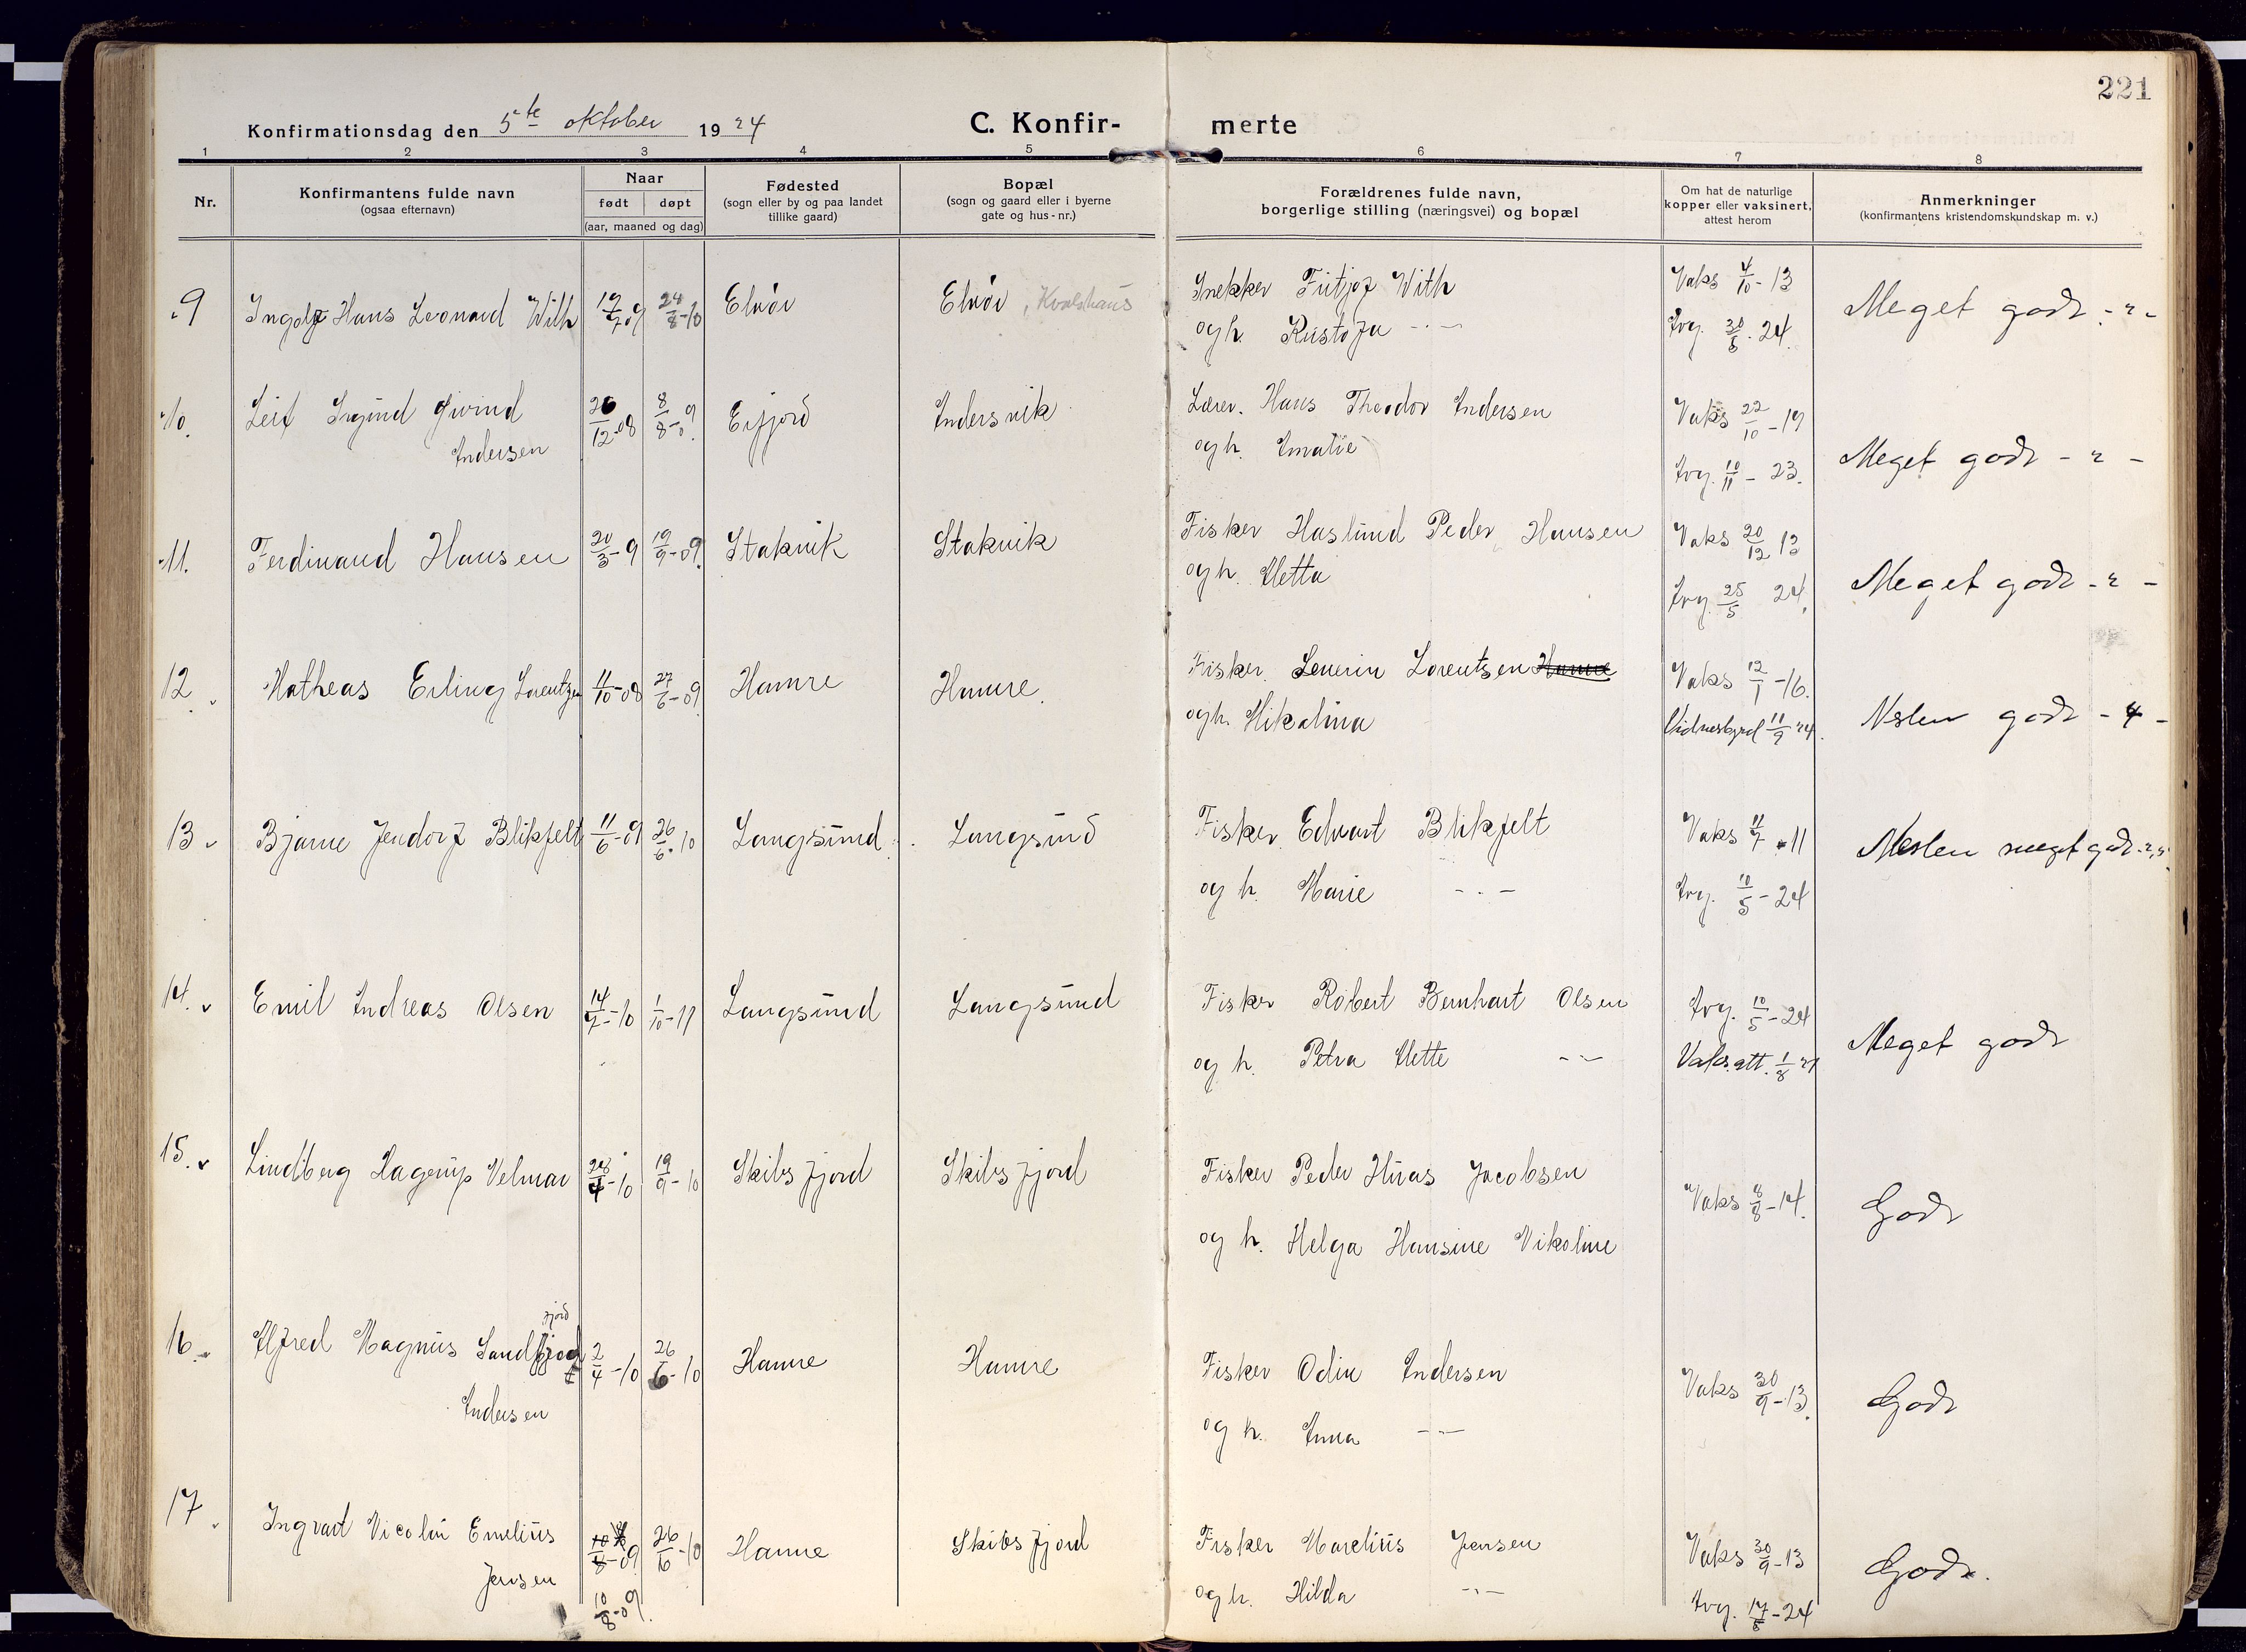 221
Konfirmationsdag den 5te oktober 1924
C. Konfir- merte
1 2 3 4 5 6 7 8
Nr.
Konfirmantens fulde navn
(ogsaa efternavn)
Naar
født døpt
(aar, maaned og dag)
Fødested
(sogn eller by og paa landet
tillike gaard)
Bopæl
(sogn og gaard eller i byerne
gate og hus-nr.)
Forældrenes fulde navn,
borgerlige stilling (næringsvei) og bopæl
Om hat de naturlige
kopper eller vaksinert,
attest herom
Anmerkninger
(konfirmantens kristendomskundskap m. v.)
9 Ingolf Hans Leonard With 24/8-10
Snekker Fritjof With Vaks 4/10-13
og h. Kristofa -"- 24.
Meget godt -2-
10. Leif Sigund Øivind
Andersen 20/12-08 8/8-09. Erfjord Andersvik
Lærer. Hans Theodor Andersen Vaks 22/10-19
og h. Amalie 10/11-23.
Meget godt -2-
11. Ferdinand Hansen 20/3-9 19/9-09. Stakvik Stakvik
Fisker Haslund Peder Hansen Vaks 20/12 13
og h. Mette 25/5 24.
Meget godt -2-
12. Matheas Erling Lorentzen 11/10-08 27/6-09 Hamre Hamre.
Fisker. Severin Lorentsen Hamre Vaks 12/1-16.
og h. Nikolina Vidnesbyrd 11/9-24.
Nesten godt -4-
13 Bjarne Jendorf Blikfelt 11/6-09 26/6-10 Langsund. Langsund
Fisker Edvart Blikfelt Vaks 11/7-11
og h. Marie -"- 10/5-24
Nesten meget godt
14. Emil Andreas Olsen 14/7-10 1/10-11 Langsund Langsund
Fisker Robert Bernhart Olsen 10/5-24
og h. Petra Mette -"- Vaks.att. 1/8
Meget godt
15. Lindberg Hagerup Velmar 19/9-10 Skibsfjord Skibsfjord
Fisker Peder Huas Jacobsen Vaks 8/8-14.
og h. Helga Hansine Nikoline
Godt
fjord
16. Alfred Magnus Sandfjord
Andersen 2/4-10 26/6-10 Hamre Hamre
Fisker Odin Andersen Vaks 30/9-13.
og h. Anna -"-
Godt
17. Ingvart Nicolai Emelius
Jensen 10/8-09 26/6-10 Hamre Skibsfjord
Fisker Marelius Jensen Vaks 30/9-13
og h. Hilda -"- 24
Godt.
10/8-09.